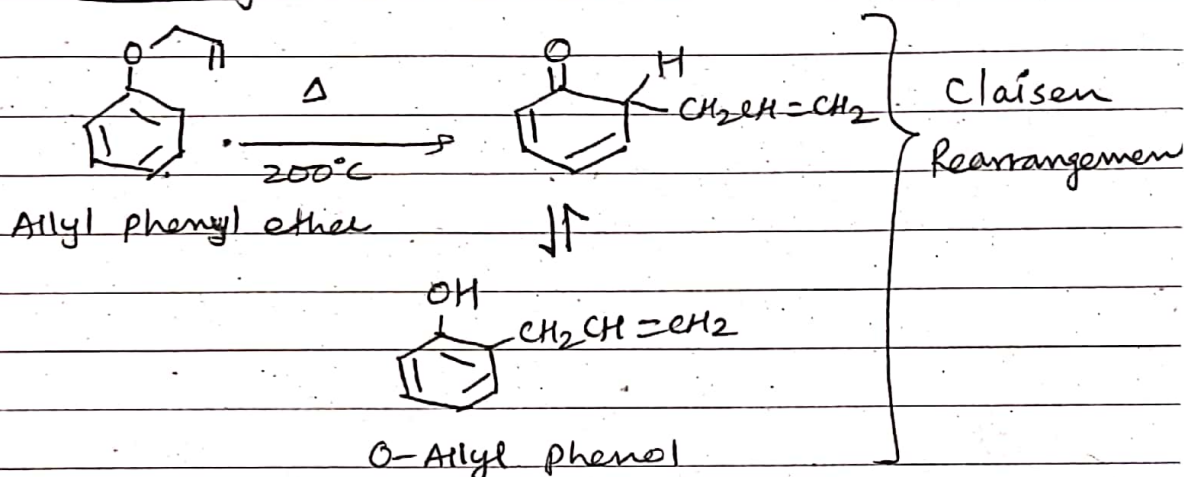 O
Δ
200°C
Allyl phenyl ether
O
H
CH2CH=CH2
Claisen
Rearrangemen
⇌
OH
CH2CH=CH2
O-Allyl phenol